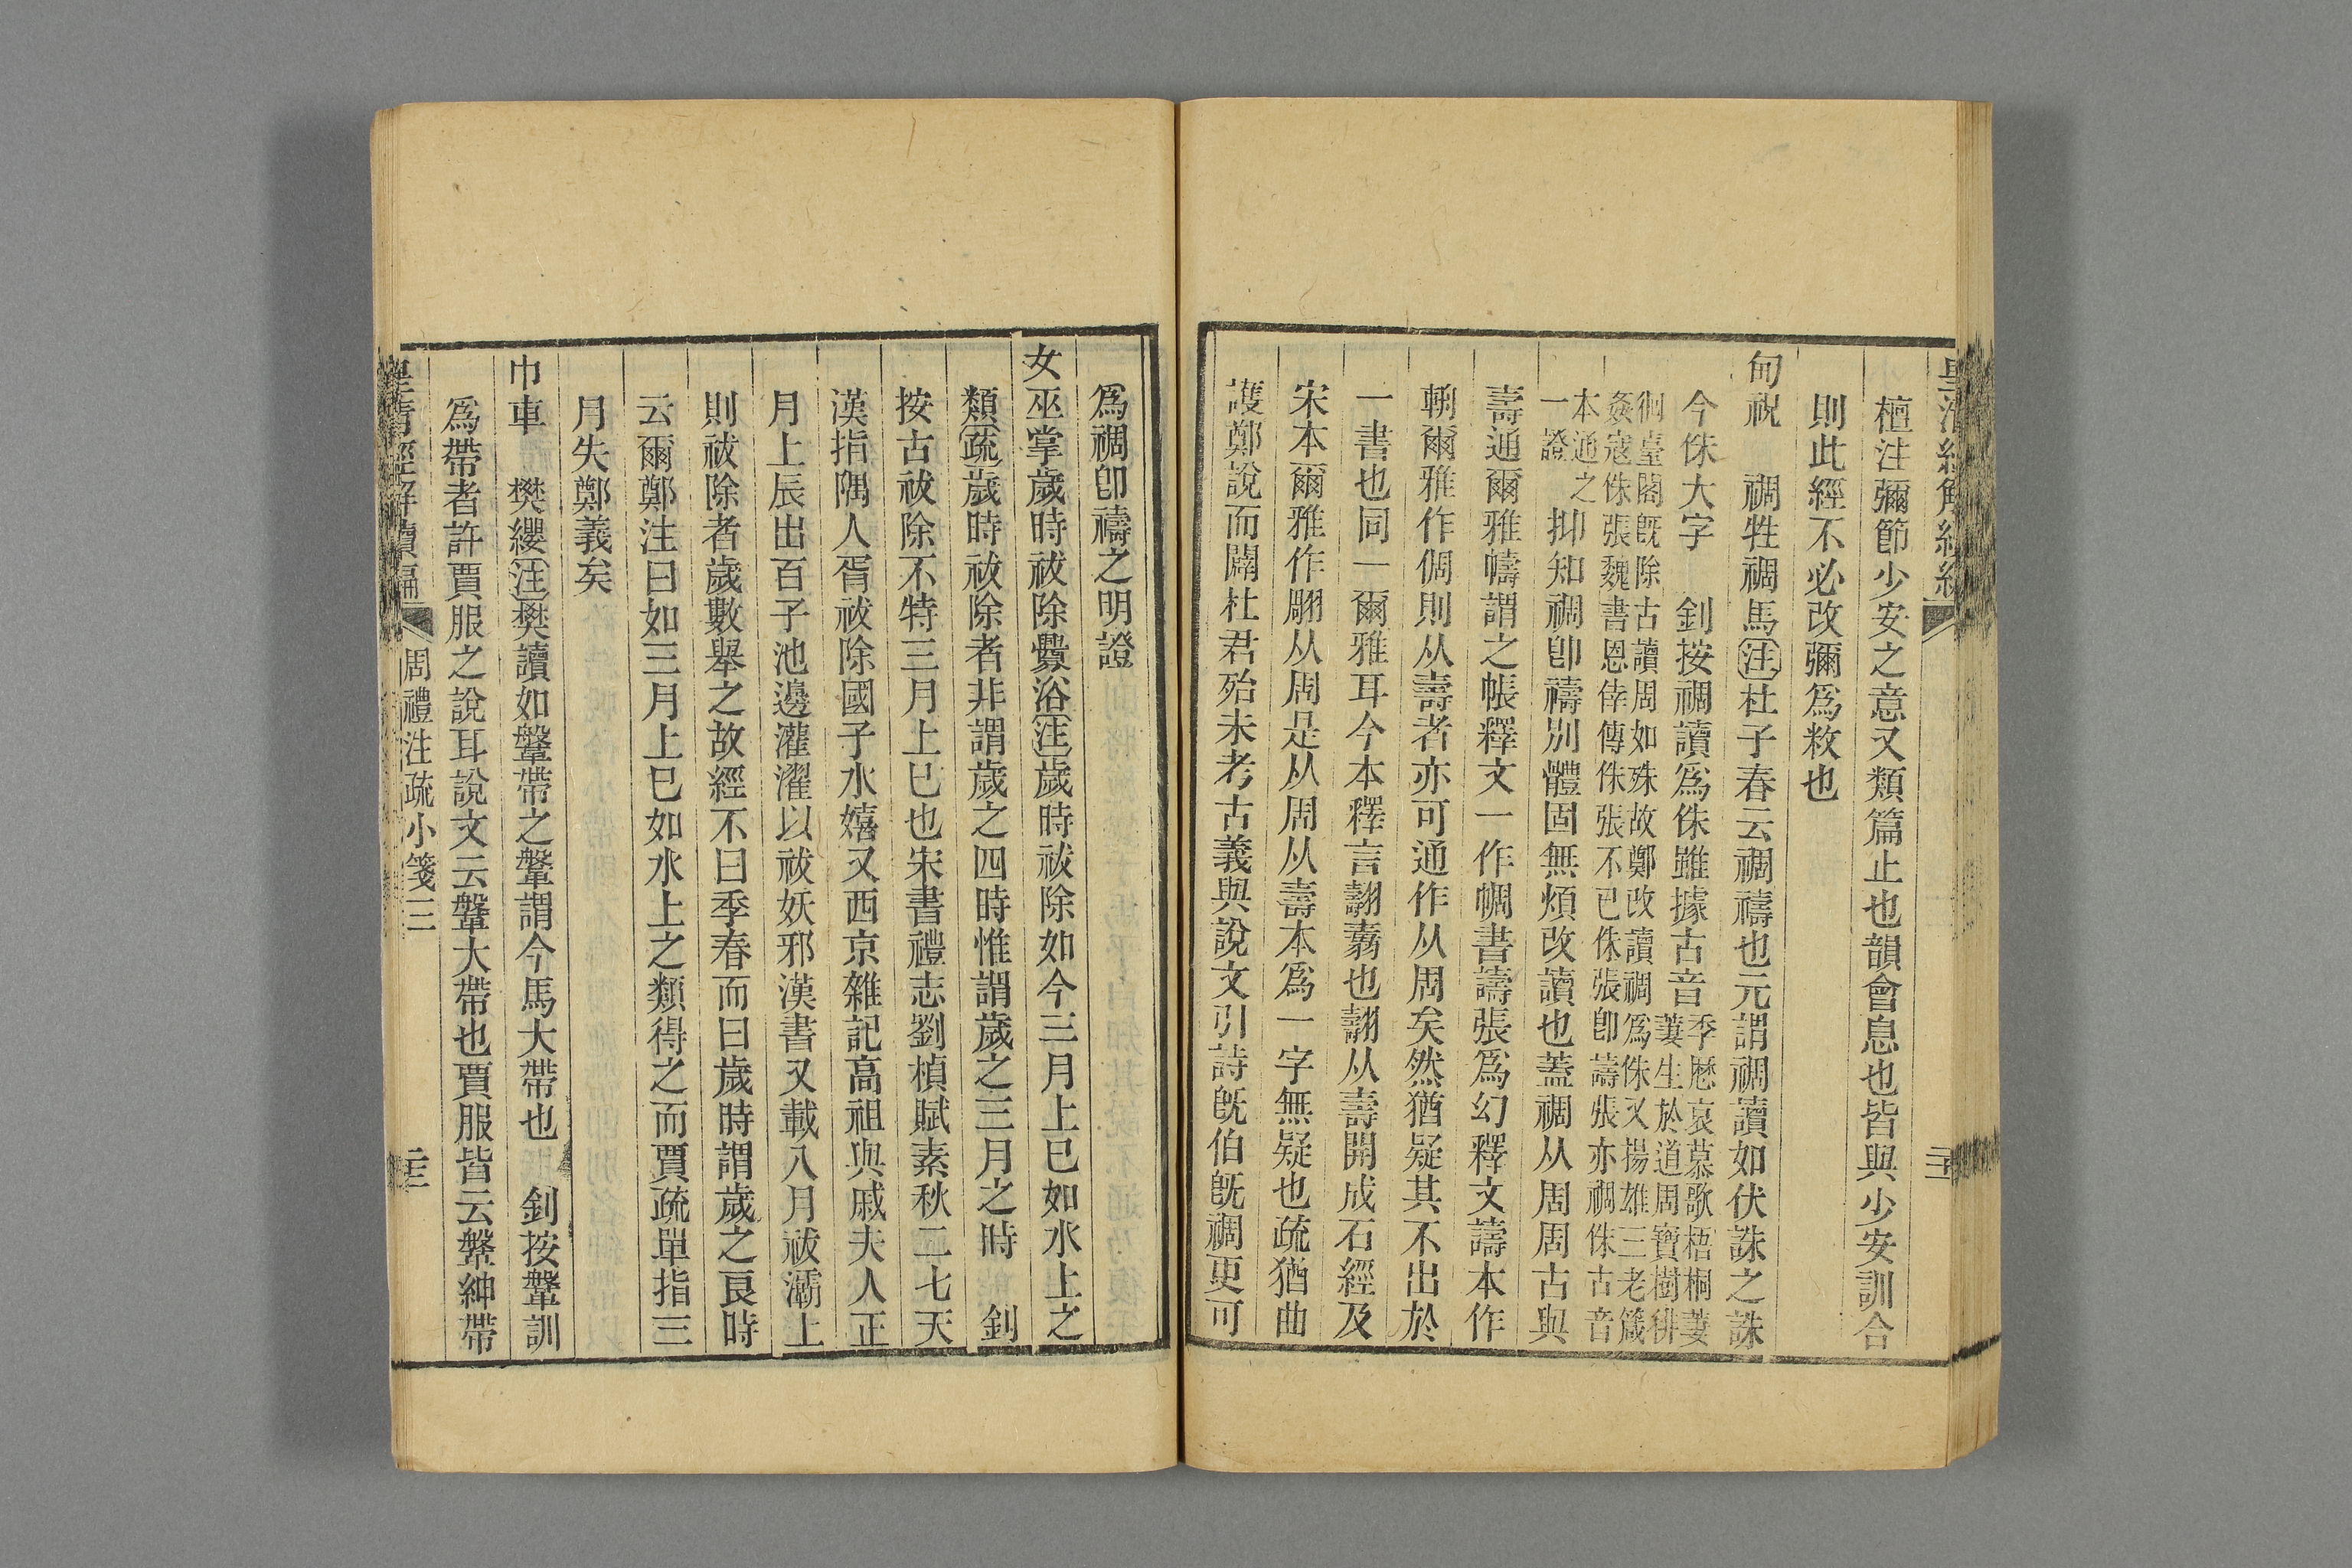 檀注彌節少安之意又類篇止也韻會息也皆與少安訓合
則此經不必改彌爲敉也
甸祝　禂牲禂馬注杜子春云禂禱也元謂禂讀如伏誅之誅
今侏大字　釗按禂讀爲侏雖據古音季歴哀慕歌梧桐萋
萋生於道周寶樹徘
徊臺閣旣除古讀周如殊故鄭改讀禂爲侏又揚雄三老箴
姦寇侏張魏書恩倖傳侏張不已侏張卽譸張亦禂侏古音
本通之
一證　抑知禂卽禱別體固無煩改讀也蓋禂从周周古與
壽通爾雅幬謂之帳釋文一作幬書譸張爲幻釋文譸本作
輈爾雅作侜則从壽者亦可通作从周矣然猶疑其不出於
一書也同一爾雅耳今本釋言翿纛也翿从壽開成石經及
宋本爾雅作翢从周是从周从壽本爲一字無疑也疏猶曲
護鄭說而闢杜君殆未考古義與說文引詩旣伯旣禂更可
爲禂卽禱之明證
女巫掌歲時祓除釁浴注歲時祓除如今三月上巳如水上之
類疏歲時祓除者非謂歲之四時惟謂歲之三月之時　釗
按古祓除不特三月上巳也宋書禮志劉楨賦素秋二七天
漢指隅人胥祓除國子水嬉又西京雜記高祖與戚夫人正
月上辰出百子池邊灌濯以祓妖邪漢書又載八月祓灞上
則祓除者歲數舉之故經不曰季春而曰歲時謂歲之良時
云爾鄭注曰如三月上巳如水上之類得之而賈疏單指三
月失鄭義矣
巾車　樊纓注樊讀如鞶帶之鞶謂今馬大帶也　釗按鞶訓
爲帶者許賈服之說耳說文云鞶大帶也賈服皆云鞶紳帶
皇淸經解續編　周禮注疏小箋三